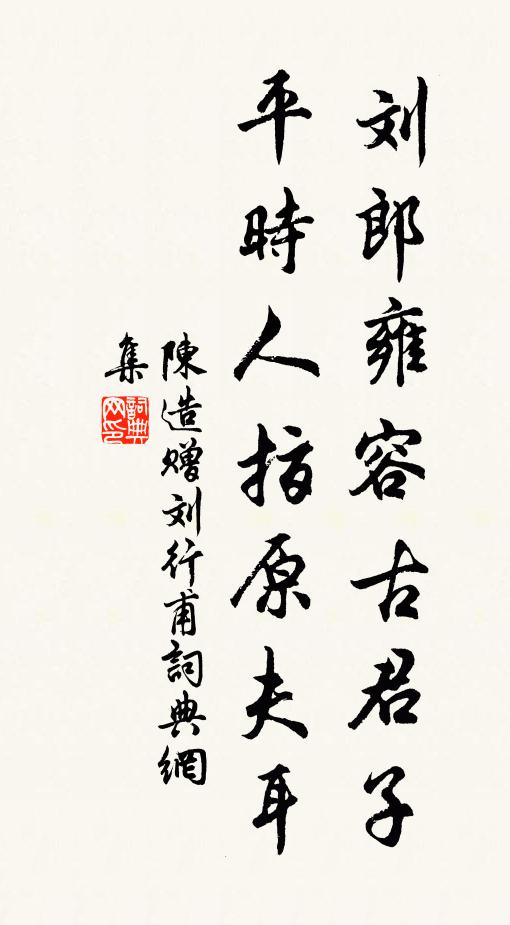 刘郎雍容古君子
平時人指原夫耳
陳造赠刘行甫詞典網
集
詞典
网印